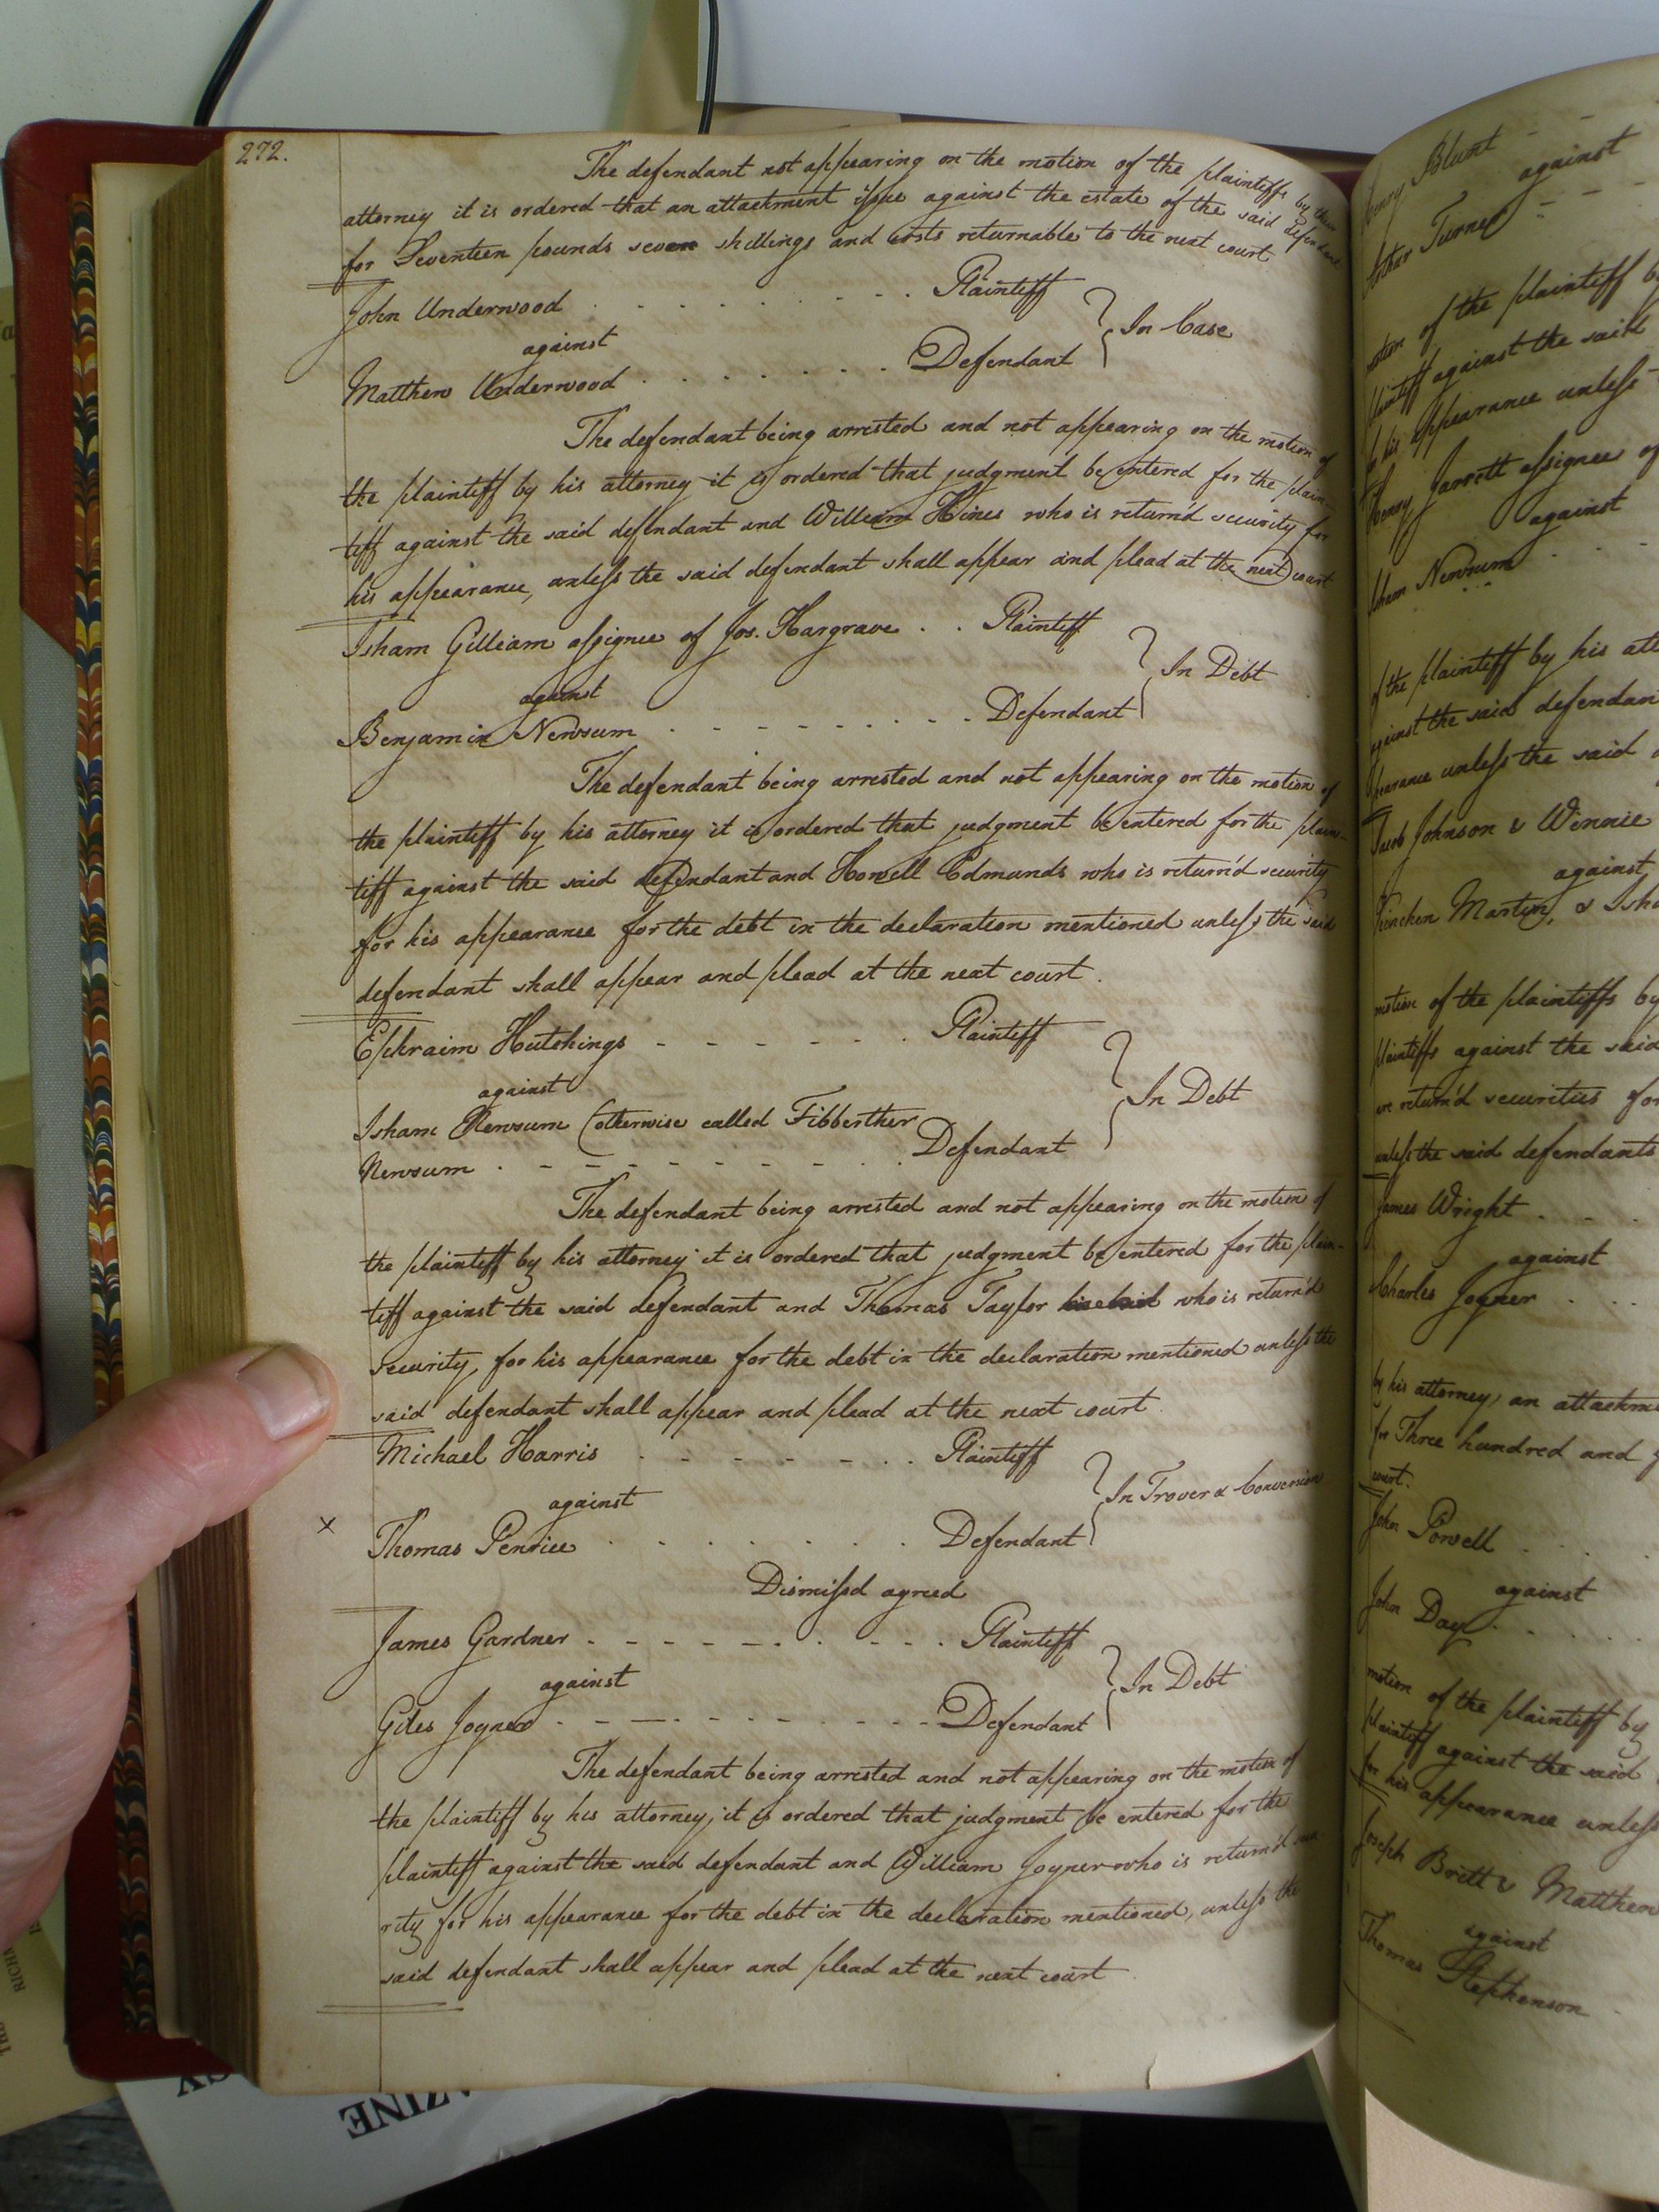 272.
The defendant not appearing on the motion of the plaintiffs by their
attorney it is ordered that an attachment issue against the estate of the said defendant
for Seventeen pounds seven shillings and costs returnable to the next court
John Underwood . . . . . . . . Plaintiff
against
In Case
Matthew Underwood . . . . . . . Defendant
The defendant being arrested and not appearing on the motion of
the plaintiff by his attorney it is ordered that judgment be entered for the plain-
tiff against the said defendant and William Hines who is return'd security for
his appearance, unless the said defendant shall appear and plead at the next court
Isham Gilliam assignee of Jos. Hargrave . . Plaintiff
against
In Debt
Benjamin Newsum . - - - - - - - Defendant
The defendant being arrested and not appearing on the motion of
the plaintiff by his attorney it is ordered that judgment be entered for the plain-
tiff against the said defendant and Howell Edmunds who is return'd security
for his appearance for the debt in the declaration mentioned unless the said
defendant shall appear and plead at the next court.
Ephraim Hutchings - - - - - . . Plaintiff
against
In Debt
Isham Newsum (otherwise called Fibberther
Newsum . - - - - - - - - . Defendant
The defendant being arrested and not appearing on the motion of
the plaintiff by his attorney it is ordered that judgment be entered for the plain-
tiff against the said defendant and Thomas Taylor who is return'd
security for his appearance for the debt in the declaration mentioned unless the
said defendant shall appear and plead at the next court
Michael Harris . - - - - - . . Plaintiff
against
In Trover & Conversion
x
Thomas Penrice . . . . . . . Defendant
Dismissd agreed
James Gardner . - - - - - . . - - . Plaintiff
against
In Debt
Giles Joyner . - - - - - - - - - Defendant
The defendant being arrested and not appearing on the motion of
the plaintiff by his attorney, it is ordered that judgment be entered for the
plaintiff against the said defendant and William Joyner who is return'd secu
rity for his appearance for the debt in the declaration mentioned, unless the
said defendant shall appear and plead at the next court
Henry Blunt - -
against
Turner - -
motion of the plaintiff by
plaintiff against the said
for his appearance unless
Henry Jarrett assignee of
against
Isham Newsum . . .
of the plaintiff by his att
against the said defendan
pearance unless the said
Jacob Johnson & Winnie
against
Kinchen Martin, & Isha
motion of the plaintiffs by
plaintiffs against the said
are return'd securities for
unless the said defendants
James Wright . . .
against
Charles Joyner . . .
by his attorney, an attachme
for Three hundred and
court.
John Powell . . .
against
John Day . . . .
motion of the plaintiff by
plaintiff against the said
for his appearance unless
Joseph Britt & Matthew
against
Thomas Stephenson .
AZINE
RICHM